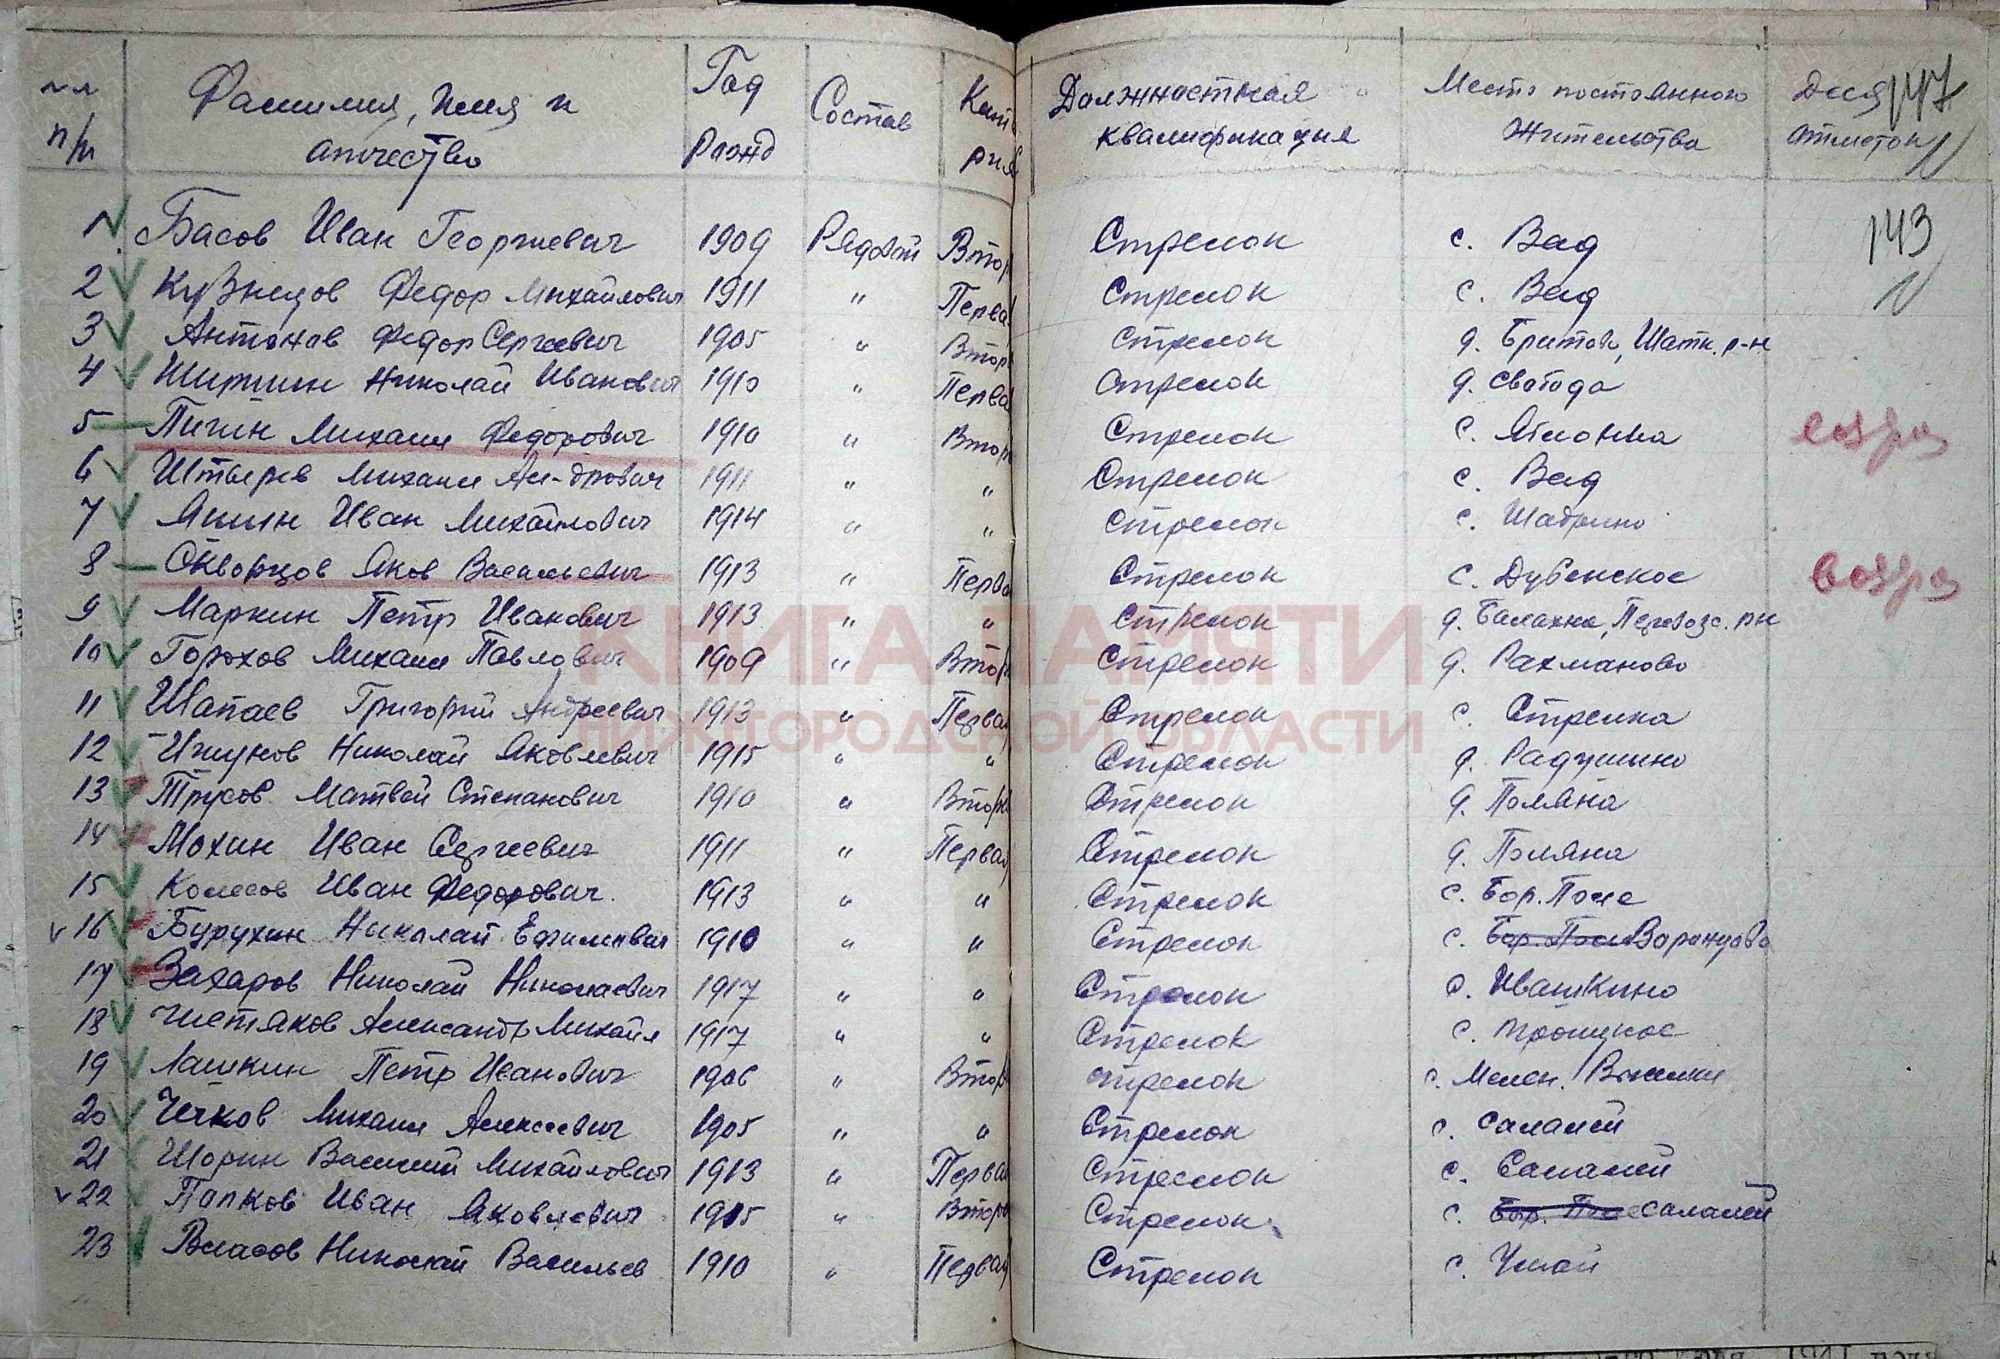 №№ п/п Фамилия, имя и отчество Год рожд Состав Катего рия Должностная квалификация Место постоянного жительства Для отметок 147
1 Басов Иван Георгиевич 1909 Рядовой Втор Стрелок с. Вад 143
2 Кузнецов Федор Михайлович 1911 " Первая Стрелок с. Вад
3 Антонов Федор Сергеевич 1905 " Втор Стрелок д. Бритов, Шатк. р-н
4 Ширшин Николай Иванович 1910 " Перва Стрелок д. Свобода
5 Пигин Михаил Федорович 1910 " Втор Стрелок с. Яблонка
6 Штырев Михаил Ал-дрович 1911 " " Стрелок с. Вад
7 Яшин Иван Михайлович 1914 " " Стрелок с. Шадрино
8 Скворцов Яков Васильевич 1913 " Перва Стрелок с. Дубенское возвра
9 Маркин Петр Иванович 1913 " " Стрелок д. Балахна, Перевозс. рн
10 Горохов Михаил Павлович 1909 " Втор Стрелок д. Рахманово
11 Шапаев Григорий Андреевич 1913 " Первая Стрелок с. Стрелка
12 Ижунов Николай Яковлевич 1915 " " Стрелок д. Радушино
13 Трусов Матвей Степанович 1910 " Втора Стрелок д. Поляна
14 Мохин Иван Сергеевич 1911 " Первая Стрелок д. Поляна
15 Колесов Иван Федорович 1913 " " Стрелок с. Бор. Поле
16 Бурухин Николай Ефимович 1910 " " Стрелок с. Бор. Поле Воронцово
17 Захаров Николай Николаевич 1917 " " Стрелок д. Ивашкино
18 Чистяков Александр Михайл 1917 " " Стрелок с. Троицкое
19 Лашкин Петр Иванович 1906 " Втор Стрелок с. Мелен. Выселки
20 Чичков Михаил Алексеевич 1905 " " Стрелок с. Салалей
21 Шорин Василий Михайлович 1913 " Первая Стрелок с. Салалей
22 Папков Иван Яковлевич 1915 " Втор Стрелок с. Бор. Поле Салалей
23 Власов Николай Васильев 1910 " Первая Стрелок с. Умай
КНИГА ПАМЯТИ
НИЖЕГОРОДСКОЙ ОБЛАСТИ